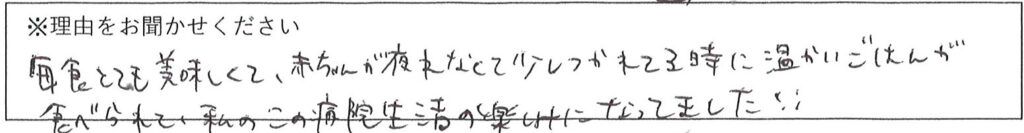 ※理由をお聞かせください
毎食とても美味しくて、赤ちゃんが夜ねなくて少しつかれてる時に温かいごはんが
食べられて、私のこの病院生活の楽しみになってました!!